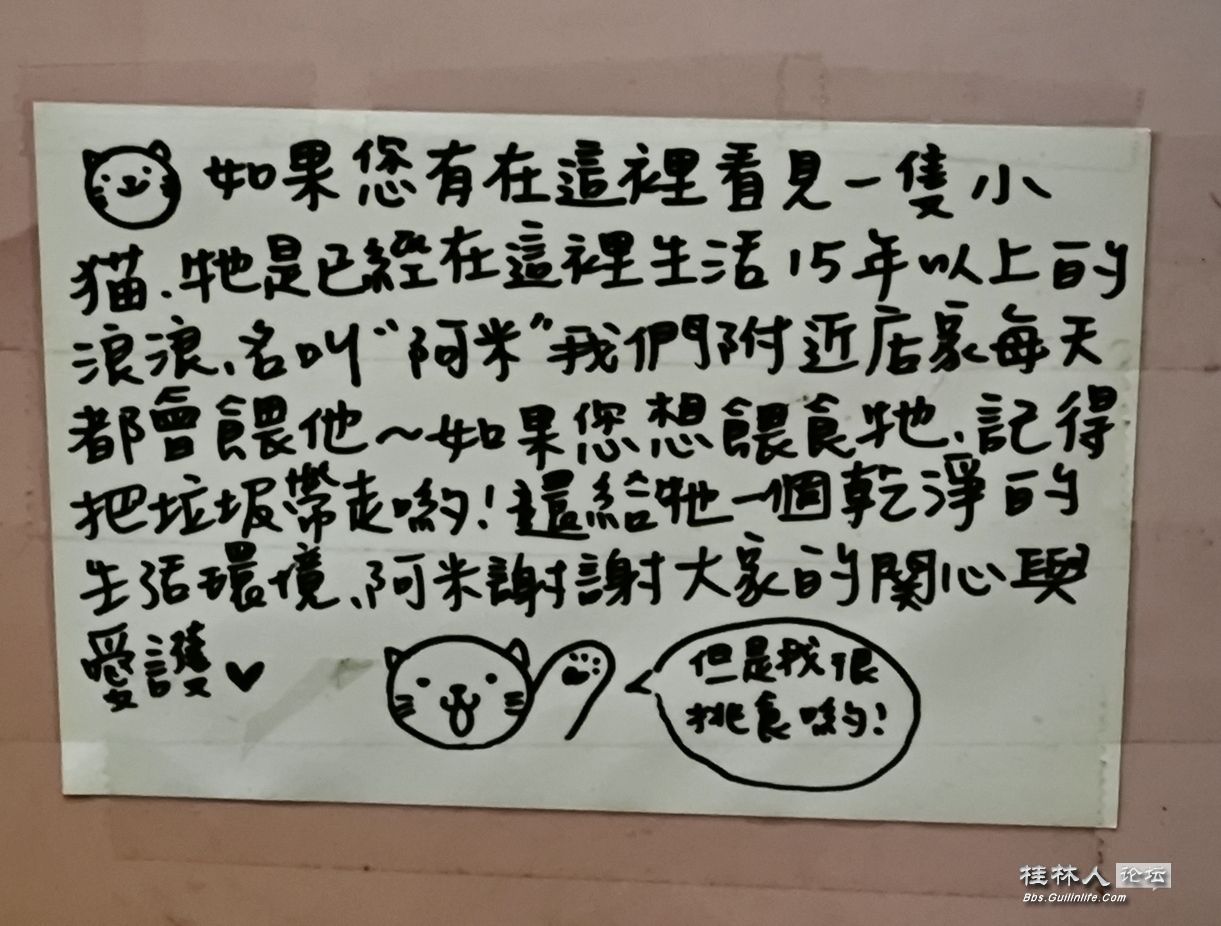 如果您有在這裡看見一隻小
猫、牠是已經在這裡生活15年以上的
浪浪、名叫“阿米”我們附近店家每天
都會餵他~如果您想餵食牠、記得
把垃圾帶走喲!還給牠一個乾淨的
生活環境、阿米謝謝大家的関心與
愛護♥
但是我很
挑食喲!
桂林人论坛
Bbs.Guilinlife.Com